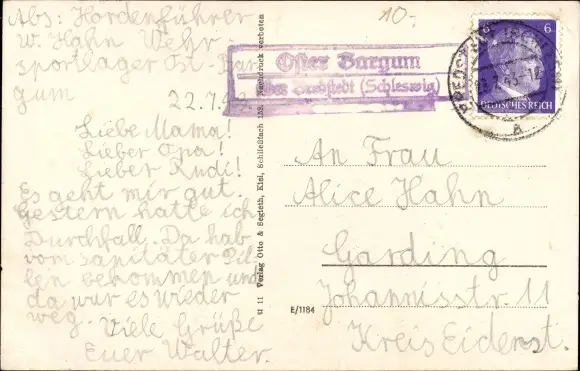 Abs: Hordenführer
W. Hahn Wehr-
sportlager Ost-Bar-
gum
22.7.
Liebe Mama!
Lieber Opa!
Lieber Rudi!
Es geht mir gut.
Gestern hatte ich
Durchfall. Da hab
vom sanitäter Pil-
len bekommen und
da war es wieder
weg. Viele Grüße
Euer Walter.
U 11 Verlag Otto & Segieth, Kiel, Schließfach Nachdruck verboten
E/1184
10.-
Oster Bargum
über Bredstedt (Schleswig)
6
DEUTSCHES REICH
a
An Frau
Alice Hahn
Garding
Johannisstr. 11
Kreis Eiderst.